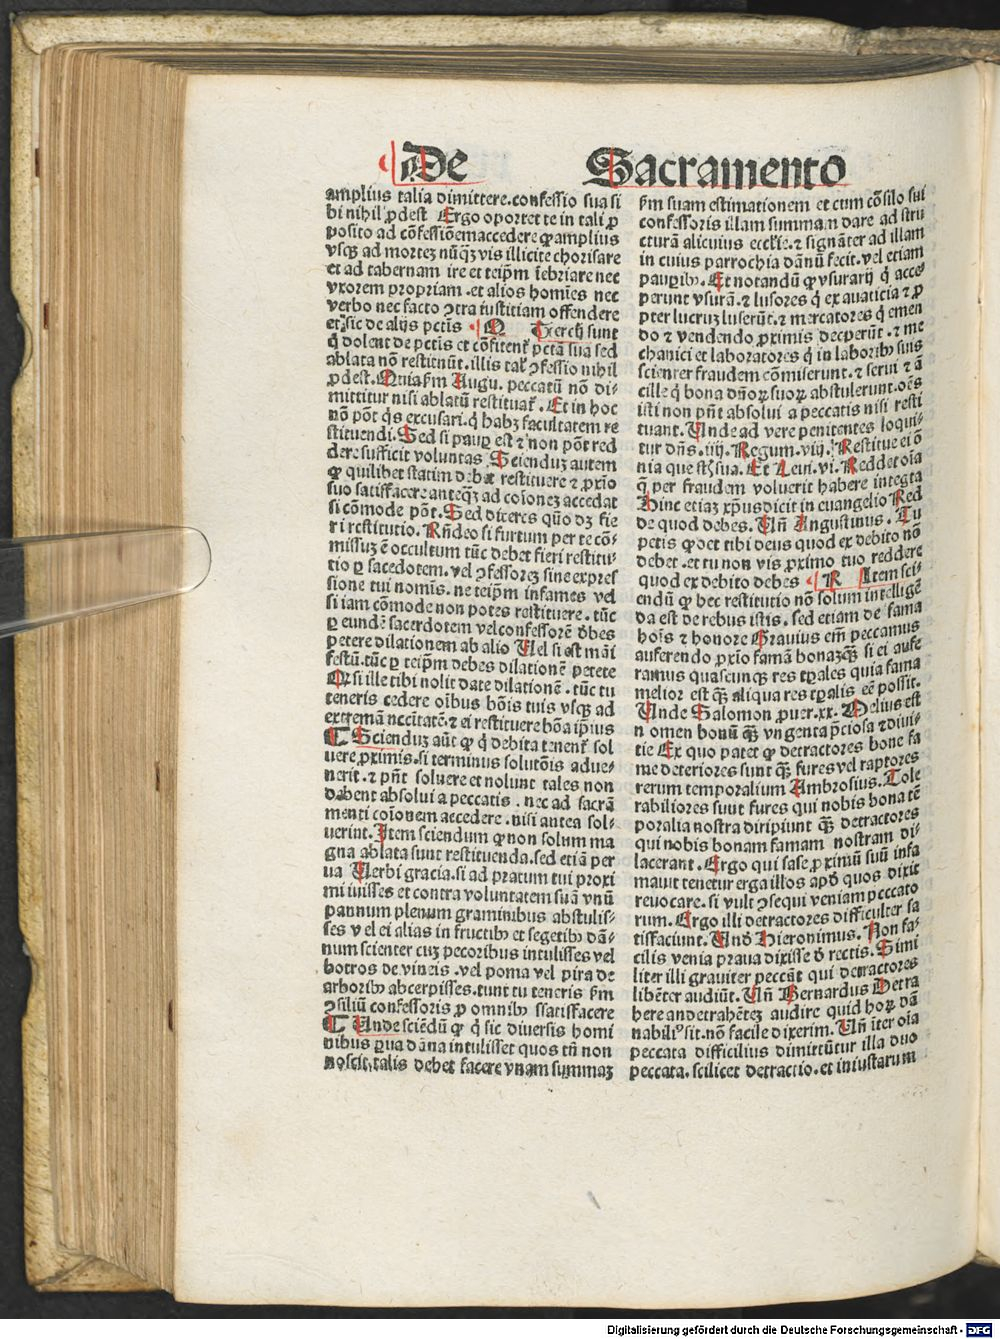 De Sacramento
amplius talia dimittere. confessio sua si
bi nihil ꝓdest Ergo oportet te in tali ꝓ
posito ad cōfessiōem accedere ꝙ amplius
vsqꝫ ad mortē nūqꝫ vis illicite chorisare
et ad tabernam ire et teip̄m īebriare nec
vxorem propriam. et alios homīes nec
verbo nec facto ꝯtra iustitiam offendere
et sic de alijs pctīs Q Tercij sunt
q̄ dolent de pctīs et cōfitent᷑ pctā sua sed
ablata nō restitnūt. illis tal᷑ ꝯfessio nihil
ꝓdest. Quia ẜm Augu. peccatū nō di-
mittitur nisi ablatū restituat᷑. Et in hoc
nō pōt q̇s excusari. q̇ habꝫ facultatem re
stituendi. Sed si paupꝑ est ⁊ non pōt red
dere sufficit voluntas Scienduꝫ autem
ꝙ quilibet statim debet restituere ⁊ ꝓxīo
suo satisfacere anteqꝫ ad coīoneꝫ accedat
si cōmode pōt. Sed diceres quō dꝫ fie
ri restitutio. Rn̄deo si furtum per te cō-
missuꝫ ē occultum tūc debet fieri restitu-
tio ꝑ sacedotem. vel ꝯfessoreꝫ sine expres
sione tui nomīs. ne teip̄m infames vel
si iam cōmode non potes restituere. tūc
ꝑ eundē sacerdotem vel confessorē debes
petere dilationem ab alio Uel si est māi
festū. tūc ꝑ teip̄m debes dilationē petere
Qꝛ si ille tibi nolit dare dilationē. tūc tu
teneris cedere oībus bōis tuis vsqꝫ ad
extremā nccītatē. ⁊ ei restituere bōa ip̄ius
¶ Scienduꝫ aūt ꝙ q̇ debita tenent᷑ sol
uere ꝓximis. si terminus solutōis adue-
nerit. ⁊ pn̄t soluere et nolunt tales non
dabent absolui a peccatis. nec ad sacrā
menti coīonem accedere. nisi antea sol-
uerint. Item sciendum ꝙ non solum ma
gna ablata sunt restituenda. sed etiā per
ua Uerbi gracia. si ad pratum tui proxi
mi iuisses et contra voluntatem suā vnū
pannum plenum graminibus abstulis-
ses v el ei alias in fructibꝰ et segetibꝰ dā-
num scienter cuꝫ pecoribus intulisses vel
botros de vineis. vel poma vel pira de
arboribꝰ abcerpisses. tunt tu teneris ẜm
ꝯsiliū confessoris ꝓ omnibꝰ ssatisfacere
¶ Unde sciēdū ꝙ q̇ sic diuersis homi
nibus ꝑua dāna intulisset quos tn̄ non
noscit. talis debet facere vnam summaꝫ
ẜm suam estimationem et cum cōsilo sui
confessoris illam summam dare ad stru
cturā alicuius eccl'ie. ⁊ signāter ad illam
in cuius parrochia dānū fecit. vel etiam
pauꝑibꝰ. Et notandū ꝙ vsurarij q̇ acce
perunt vsurā. ⁊ lusores q̇ ex auaricia ⁊ ꝓ
pter lucruꝫ luserūt. ⁊ mercatores q̇ emen
do ⁊ vendendo ꝓximis decperūt. ⁊ me
chanici et laboratores q̇ in laboribꝰ suis
scienter fraudem cōmiserunt. ⁊ serui ⁊ ā
cille q̇ bona dn̄oꝝ suoꝝ abstulerunt. oēs
isti non pn̄t absolui a peccatis nisi resti
tuant. Unde ad vere penitentes loqui-
tur dn̄s. iiij. Regum. viij. Restitue ei ō
nia que st̄ sua. Et Leui. vi. Reddet oīa
q̄ per fraudem voluerit habere integra
Hinc etiaꝫ xp̄us dicit in euangelio Red
de quod debes. Un̄ Angustinus. Tu
petis ꝙ det tibi deus quod ex debito nō
debet. et tu non vis ꝓximo tuo reddere
quod ex debito debes R Item sci-
endū ꝙ hec restitutio nō solum intelligē
da est de rebus istis. sed etiam de fama
hoīs ⁊ honore Grauius em̄ peccamus
auferendo ꝓxīo famā bonaꝫ qꝫ si ei aufe
ramus quascunqꝫ res tꝑales quia fama
melior est qꝫ aliqua res tꝑalis eē possit.
Unde Salomon ꝓuer. xx. Melius est
n omen bonū qꝫ vngenta p̄ciosa ⁊ diui-
tie Ex quo patet ꝙ detractores bone fa
me deteriores sunt qꝫ fures vel raptores
rerum temporalium Ambrosius. Tole
rabiliores suut fures qui nobis bona tē
poralia nostra diripiunt qꝫ detractores
qui nobis bonam famam nostram di-
lacerant. Ergo qui sase ꝓximū suū infa
mauit tenetur erga illos apd̄ quos dixit
reuocare. si vult ꝯsequi veniam peccato
rum. Ergo illi detractores difficulter sa
tisfaciunt. Und̄ Hieronimus. Non fa-
cilis venia praua dixisse d̄ rectis. Simi
liter illi grauiter peccāt qui detractores
libēter audiūt. Un̄ Bernardus Detra
here an detrahētꝫ audire quid hoꝝ dā
nabiliꝰ sit. nō facile dixerim. Un̄ iter oīa
peccata difficilius dimittūtur illa duo
peccata. scilicet detractio. et iniustarum
Digitalisierung gefördert durch die Deutsche Forschungsgemeinschaft - DFG